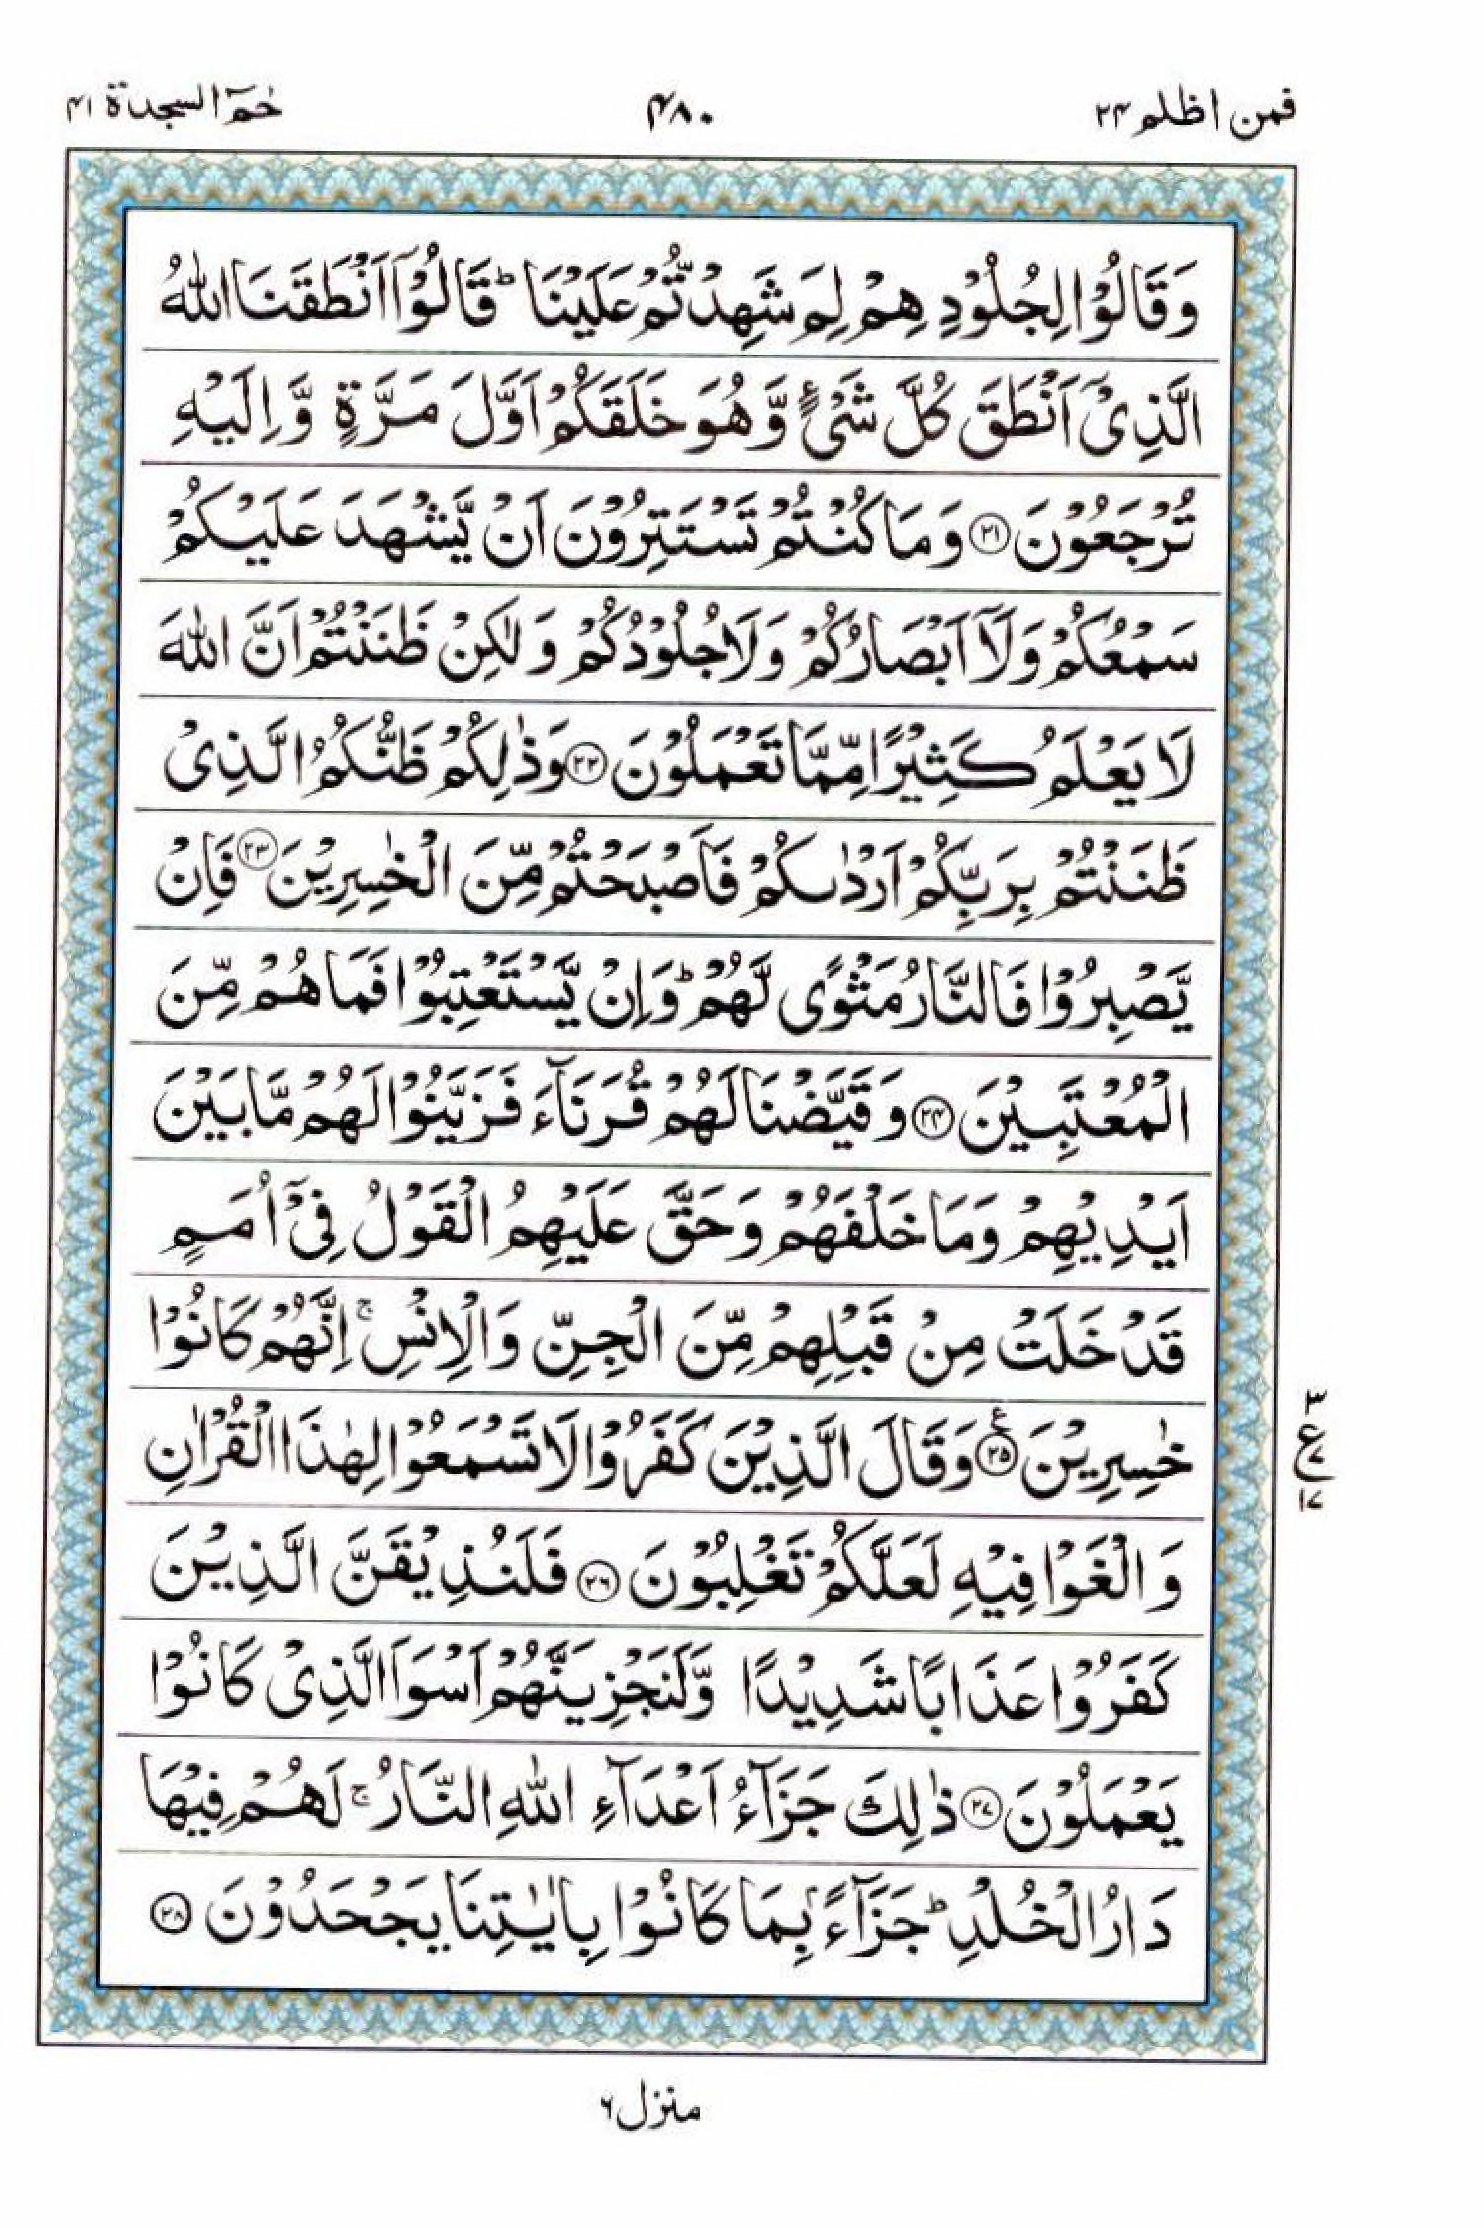 فمن اظلم ۲۴
۴۸۰
حٰمٓ السجدة ۴۱
وَقَالُوْا لِجُلُوْدِهِمْ لِمَ شَهِدْتُّمْ عَلَيْنَا ؕ قَالُوْۤا اَنْطَقَنَا اللّٰهُ
الَّذِيْۤ اَنْطَقَ كُلَّ شَیْءٍ وَّهُوَ خَلَقَكُمْ اَوَّلَ مَرَّةٍ وَّاِلَيْهِ
تُرْجَعُوْنَ ۝۲۱ وَمَا كُنْتُمْ تَسْتَتِرُوْنَ اَنْ يَّشْهَدَ عَلَيْكُمْ
سَمْعُكُمْ وَلَاۤ اَبْصَارُكُمْ وَلَا جُلُوْدُكُمْ وَلٰكِنْ ظَنَنْتُمْ اَنَّ اللّٰهَ
لَا يَعْلَمُ كَثِيْرًا مِّمَّا تَعْمَلُوْنَ ۝۲۲ وَذٰلِكُمْ ظَنُّكُمُ الَّذِیْ
ظَنَنْتُمْ بِرَبِّكُمْ اَرْدٰىكُمْ فَاَصْبَحْتُمْ مِّنَ الْخٰسِرِيْنَ ۝۲۳ فَاِنْ
يَّصْبِرُوْا فَالنَّارُ مَثْوًی لَّهُمْ ؕ وَاِنْ يَّسْتَعْتِبُوْا فَمَا هُمْ مِّنَ
الْمُعْتَبِيْنَ ۝۲۴ وَقَيَّضْنَا لَهُمْ قُرَنَآءَ فَزَيَّنُوْا لَهُمْ مَّا بَيْنَ
اَيْدِيْهِمْ وَمَا خَلْفَهُمْ وَحَقَّ عَلَيْهِمُ الْقَوْلُ فِیْۤ اُمَمٍ
قَدْ خَلَتْ مِنْ قَبْلِهِمْ مِّنَ الْجِنِّ وَالْاِنْسِ ۚ اِنَّهُمْ كَانُوْا
خٰسِرِيْنَ ۝۲۵ ع وَقَالَ الَّذِيْنَ كَفَرُوْا لَا تَسْمَعُوْا لِهٰذَا الْقُرْاٰنِ
۳ ع ۷ ۱۷
وَالْغَوْا فِيْهِ لَعَلَّكُمْ تَغْلِبُوْنَ ۝۲۶ فَلَنُذِيْقَنَّ الَّذِيْنَ
كَفَرُوْا عَذَابًا شَدِيْدًا وَّلَنَجْزِيَنَّهُمْ اَسْوَاَ الَّذِیْ كَانُوْا
يَعْمَلُوْنَ ۝۲۷ ذٰلِكَ جَزَآءُ اَعْدَآءِ اللّٰهِ النَّارُ ۚ لَهُمْ فِيْهَا
دَارُ الْخُلْدِ ؕ جَزَآءًۢ بِمَا كَانُوْا بِاٰيٰتِنَا يَجْحَدُوْنَ ۝۲۸
منزل ۶